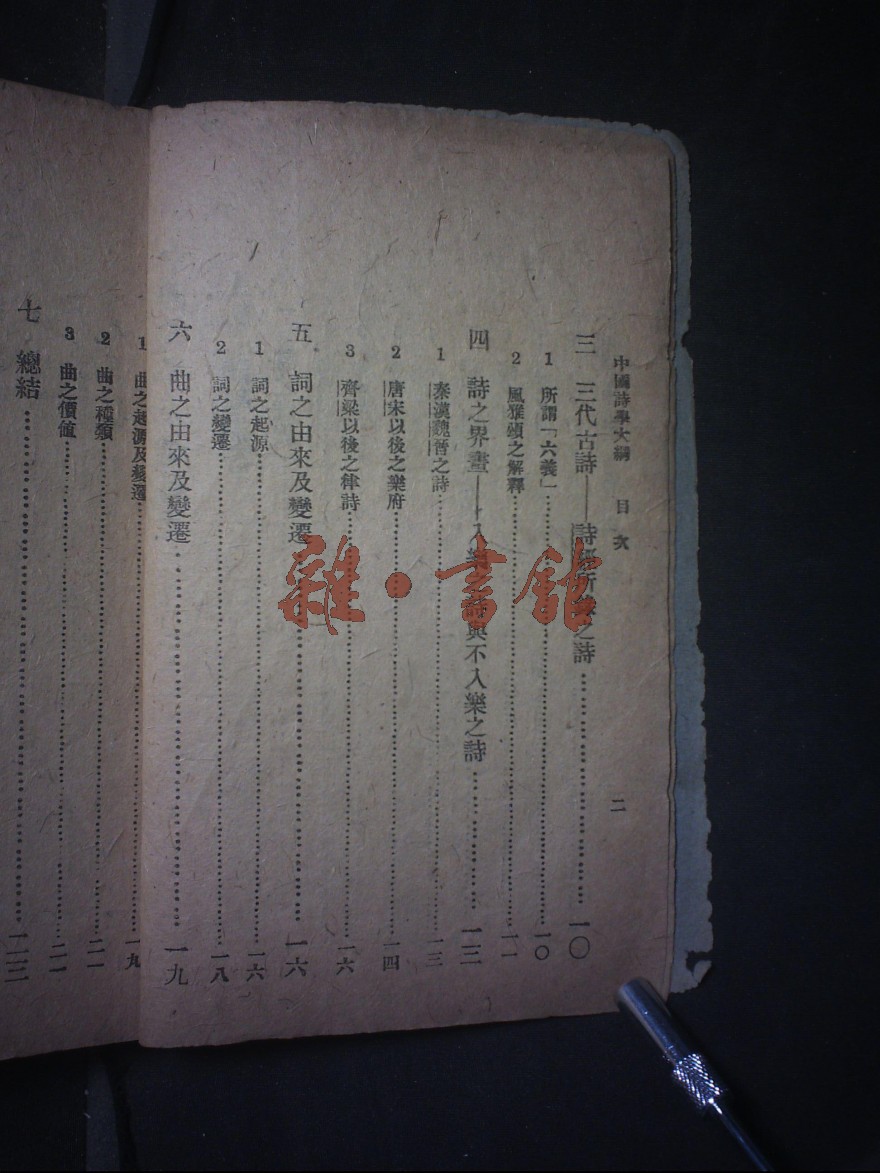 中國詩學大綱 目次 二
三 三代古詩——詩經所錄之詩 一〇
1 所謂「六義」 一〇
2 風雅頌之解釋 一一
四 詩之界畫——入樂之詩與不入樂之詩 一三
1 秦漢魏晉之詩 一三
2 唐宋以後之樂府 一四
3 齊梁以後之律詩 一六
五 詞之由來及變遷 一六
1 詞之起源 一六
2 詞之變遷 一八
六 曲之由來及變遷 一九
1 曲之起源及變遷 一九
2 曲之種類 二一
3 曲之價値 二二
七 總結 二三
雜·書館